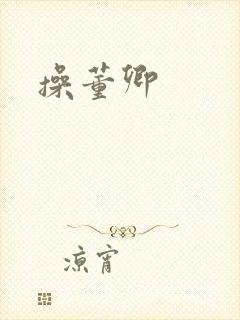 操董卿
凉宵